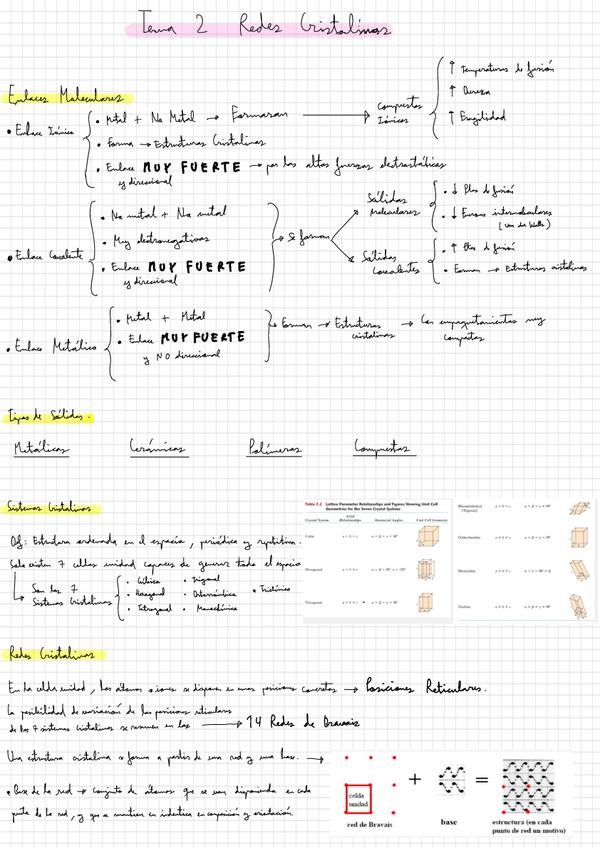 Tema 2 Redes Cristalinas
Enlaces Moleculares
• Enlace Iónico
• Metal + No Metal → Formaran → Compuestos Iónicos
↑ Temperaturas de fusión
↑ Dureza
↑ Fragilidad
• Forma → Estructuras Cristalinas
• Enlace MUY FUERTE → por las altas fuerzas electrostáticas
y direccional
• Enlace Covalente
• No metal + No metal
• Muy electronegativos
• Enlace MUY FUERTE
y direccional
→ Se forman
Sólidos Moleculares
• ↓ Ptos de fusión
• ↓ Fuerzas intermoleculares
(Van der Walls)
Sólidos Covalentes
• ↑ Ptos de fusión
• Forman → Estructuras cristalinas
• Enlace Metálico
• Metal + Metal
• Enlace MUY FUERTE
y NO direccional
→ Forman → Estructuras cristalinas → Con empaquetamientos muy compactos
Tipos de Sólidos.
Metálicos Cerámicos Polímeros Compuestos
Sistemas Cristalinos
Def: Estructura ordenada en el espacio, periódica y repetitiva.
Solo existen 7 celdas unidad capaces de generar todo el espacio
Son los 7
Sistemas Cristalinos
• Cúbico • Trigonal
• Hexagonal • Ortorrómbico • Triclínico
• Tetragonal • Monoclínico
Table 3.2 Lattice Parameter Relationships and Figures Showing Unit Cell
Geometries for the Seven Crystal Systems
Crystal System Axial Relationships Interaxial Angles Unit Cell Geometry
Cubic
Hexagonal
Tetragonal
Rhombohedral
(Trigonal)
Orthorhombic
Monoclinic
Triclinic
Redes Cristalinas
En la celda unidad, los átomos o iones se disponen en unas posiciones concretas → Posiciones Reticulares.
La posibilidad de variación de las posiciones
de los 7 sistemas cristalinos se resumen en las → 14 Redes de Bravais
Una estructura cristalina se forma a partir de una red y una base. →
• Base de la red → Conjunto de átomos que se van disponiendo en cada
punto de la red, y que se mantienen idéntica en composición y orientación.
celda
unidad
red de Bravais
+
base
=
estructura (en cada
punto de red un motivo)